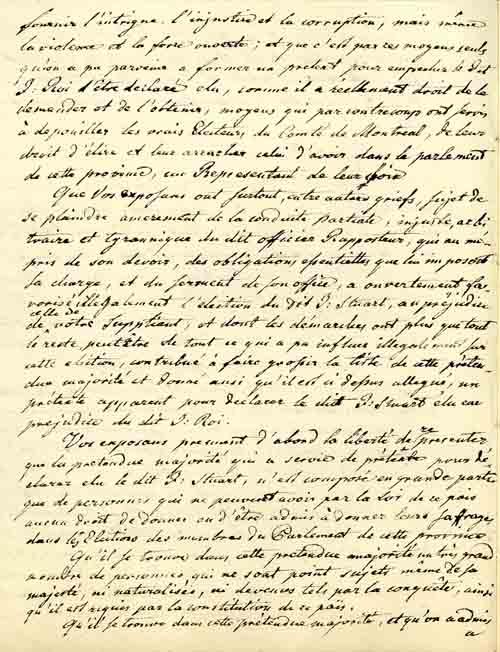 fournir l'intrigue, l'injustice et la corruption, mais même
la violence et la force ouverte; et que c'est par ces moyens seuls
qu'on a pu parvenir a former un pretext pour empecher le dit
J: Roi d'être declaré elu, comme il a reellement droit de le
demander et de l'obtenir, moyens qui par contrecoup ont servi
à depouiller les vrais Electeurs du Comté de Montreal, de leur
droit d'élire et leur arracher celui d'avoir dans le parlement
de cette province, un Representant de leur choix
Que Vos exposans ont surtout, entre autres griefs, sujet de
se plaindre amerement de la conduite partiale, injuste, arbi
traire et tyrannique du dit officier Rapporteur, qui au mé-
pris de son devoir, des obligations essentielles que lui imposoit
sa charge, et du serment de son office, a ouvertement fa-
vorisé illégalement l'élection du dit J: Stuart, au préjudice
celle de
de votre Suppliant, et dont les démarches ont plus que tout
le reste peutêtre de tout ce qui a pu influer illegalement sur
cette election, contribué à faire grossir la liste de cette préten-
due majorité et donné ainsi qu'il est ci dessus allegué, un
prétexte apparent pour declarer le dit J: Stuart élu au
prejudice du dit J: Roi.
Vos exposans prennent d'abord la liberté de representer
que la pretendue majorité qui a servie de prétexte pour dé-
clarer elu le dit J: Stuart, n'est composé en grande partie
que de personnes qui ne peuvent avoir par la loi de ce pais
aucun droit de donner ou d'être admis à donner leurs suffrages
dans les Elections des membres du Parlement de cette province
Qu'il se trouve dans cette pretendue majorité un très grand
nombre de personnes, qui ne sont point sujets même de sa
majesté, ni naturalisés, ni devenus tels par la conquête, ainsi
qu'il est riques par la constitution de ce païs.
Qu'il se trouve dans cette pretendue majorité, et qu'on a admis
a